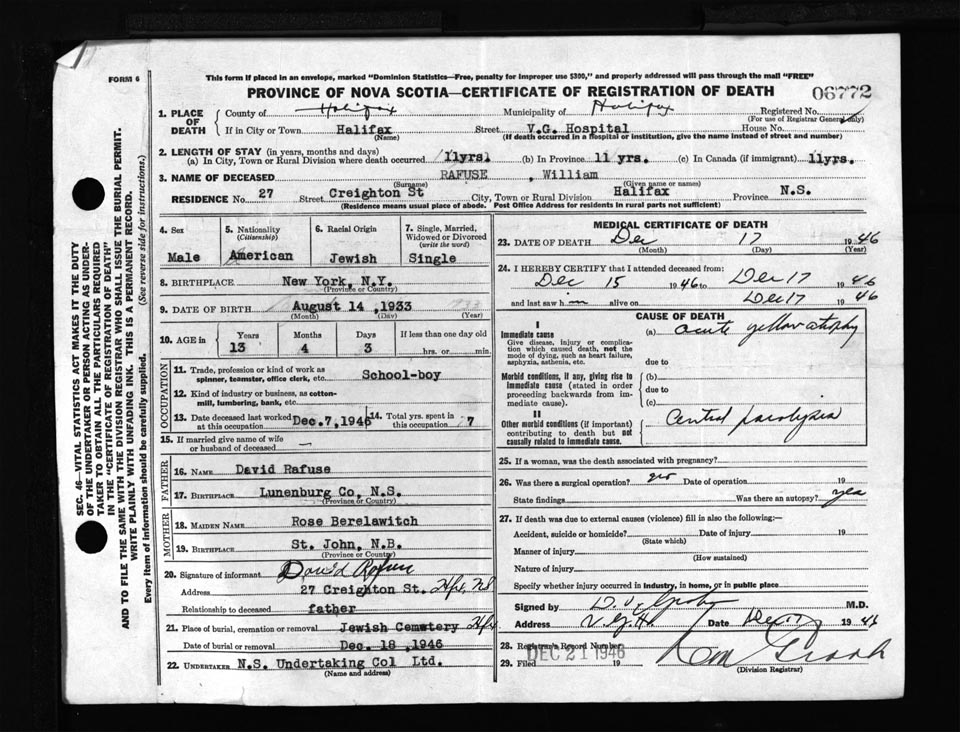 FORM 6
This form if placed in an envelope, marked "Dominion Statistics—Free, penalty for improper use $300," and properly addressed will pass through the mail "FREE"
PROVINCE OF NOVA SCOTIA—CERTIFICATE OF REGISTRATION OF DEATH
06772
1. PLACE OF DEATH
County of Halifax Municipality of Halifax Registered No.
(For use of Registrar General only)
If in City or Town Halifax Street V.G. Hospital House No.
(Name) (If death occurred in a hospital or institution, give the name instead of street and number)
2. LENGTH OF STAY (in years, months and days)
(a) In City, Town or Rural Division where death occurred 11yrs. (b) In Province 11 yrs. (c) In Canada (if immigrant) 11yrs.
3. NAME OF DECEASED RAFUSE , William
(Surname) (Given name or names)
RESIDENCE No. 27 Street Creighton St City, Town or Rural Division Halifax Province N.S.
(Residence means usual place of abode. Post Office Address for residents in rural parts not sufficient)
4. Sex
Male
5. Nationality (Citizenship)
American
6. Racial Origin
Jewish
7. Single, Married, Widowed or Divorced (write the word)
Single
8. BIRTHPLACE New York, N.Y.
(Province or Country)
9. DATE OF BIRTH August 14 ,1933
(Month) (Day) (Year)
10. AGE in Years Months Days If less than one day old
13 4 3 hrs. or min.
OCCUPATION
11. Trade, profession or kind of work as spinner, teamster, office clerk, etc. School-boy
12. Kind of industry or business, as cotton-mill, lumbering, bank, etc.
13. Date deceased last worked at this occupation Dec.7,1946
14. Total yrs. spent in this occupation 7
15. If married give name of wife or husband of deceased —
FATHER
16. NAME David Rafuse
17. BIRTHPLACE Lunenburg Co, N.S.
(Province or Country)
MOTHER
18. MAIDEN NAME Rose Berelawitch
19. BIRTHPLACE St. John, N.B.
(Province or Country)
20. Signature of informant David Rafuse
Address 27 Creighton St. Hfx, NS
Relationship to deceased father
21. Place of burial, cremation or removal Jewish Cemwtery Hfx
Date of burial or removal Dec. 18 ,1946
22. UNDERTAKER N.S. Undertaking Col Ltd.
(Name and address)
MEDICAL CERTIFICATE OF DEATH
23. DATE OF DEATH Dec 17 1946
(Month) (Day) (Year)
24. I HEREBY CERTIFY that I attended deceased from:
Dec 15 1946 to Dec 17 1946
and last saw him alive on Dec 17 1946
CAUSE OF DEATH
I
Immediate cause (a) acute yellow atrophy
Give disease, injury or complication which caused death, not the mode of dying, such as heart failure, asphyxia, asthenia, etc.
due to
Morbid conditions, if any, giving rise to immediate cause (stated in order proceeding backwards from immediate cause). (b)
due to
(c)
II
Other morbid conditions (if important) contributing to death but not causally related to immediate cause. Central paralysis
25. If a woman, was the death associated with pregnancy?
26. Was there a surgical operation? no Date of operation 19
State findings Was there an autopsy? yes
27. If death was due to external causes (violence) fill in also the following:—
Accident, suicide or homicide? Date of injury 19
(State which)
Manner of injury
(How sustained)
Nature of injury
Specify whether injury occurred in industry, in home, or in public place
Signed by M.D.
Address V.G.H. Date Dec 17 19
28. Registrar's Record Number
29. Filed DEC 21 1946 19
(Division Registrar)
SEC. 46—VITAL STATISTICS ACT MAKES IT THE DUTY
OF THE UNDERTAKER OR PERSON ACTING AS UNDER-
TAKER TO OBTAIN ALL THE PARTICULARS REQUIRED
IN THE "CERTIFICATE OF REGISTRATION OF DEATH"
AND TO FILE THE SAME WITH THE DIVISION REGISTRAR WHO SHALL ISSUE THE BURIAL PERMIT.
WRITE PLAINLY WITH UNFADING INK. THIS IS A PERMANENT RECORD.
Every item of information should be carefully supplied. (See reverse side for instructions.)